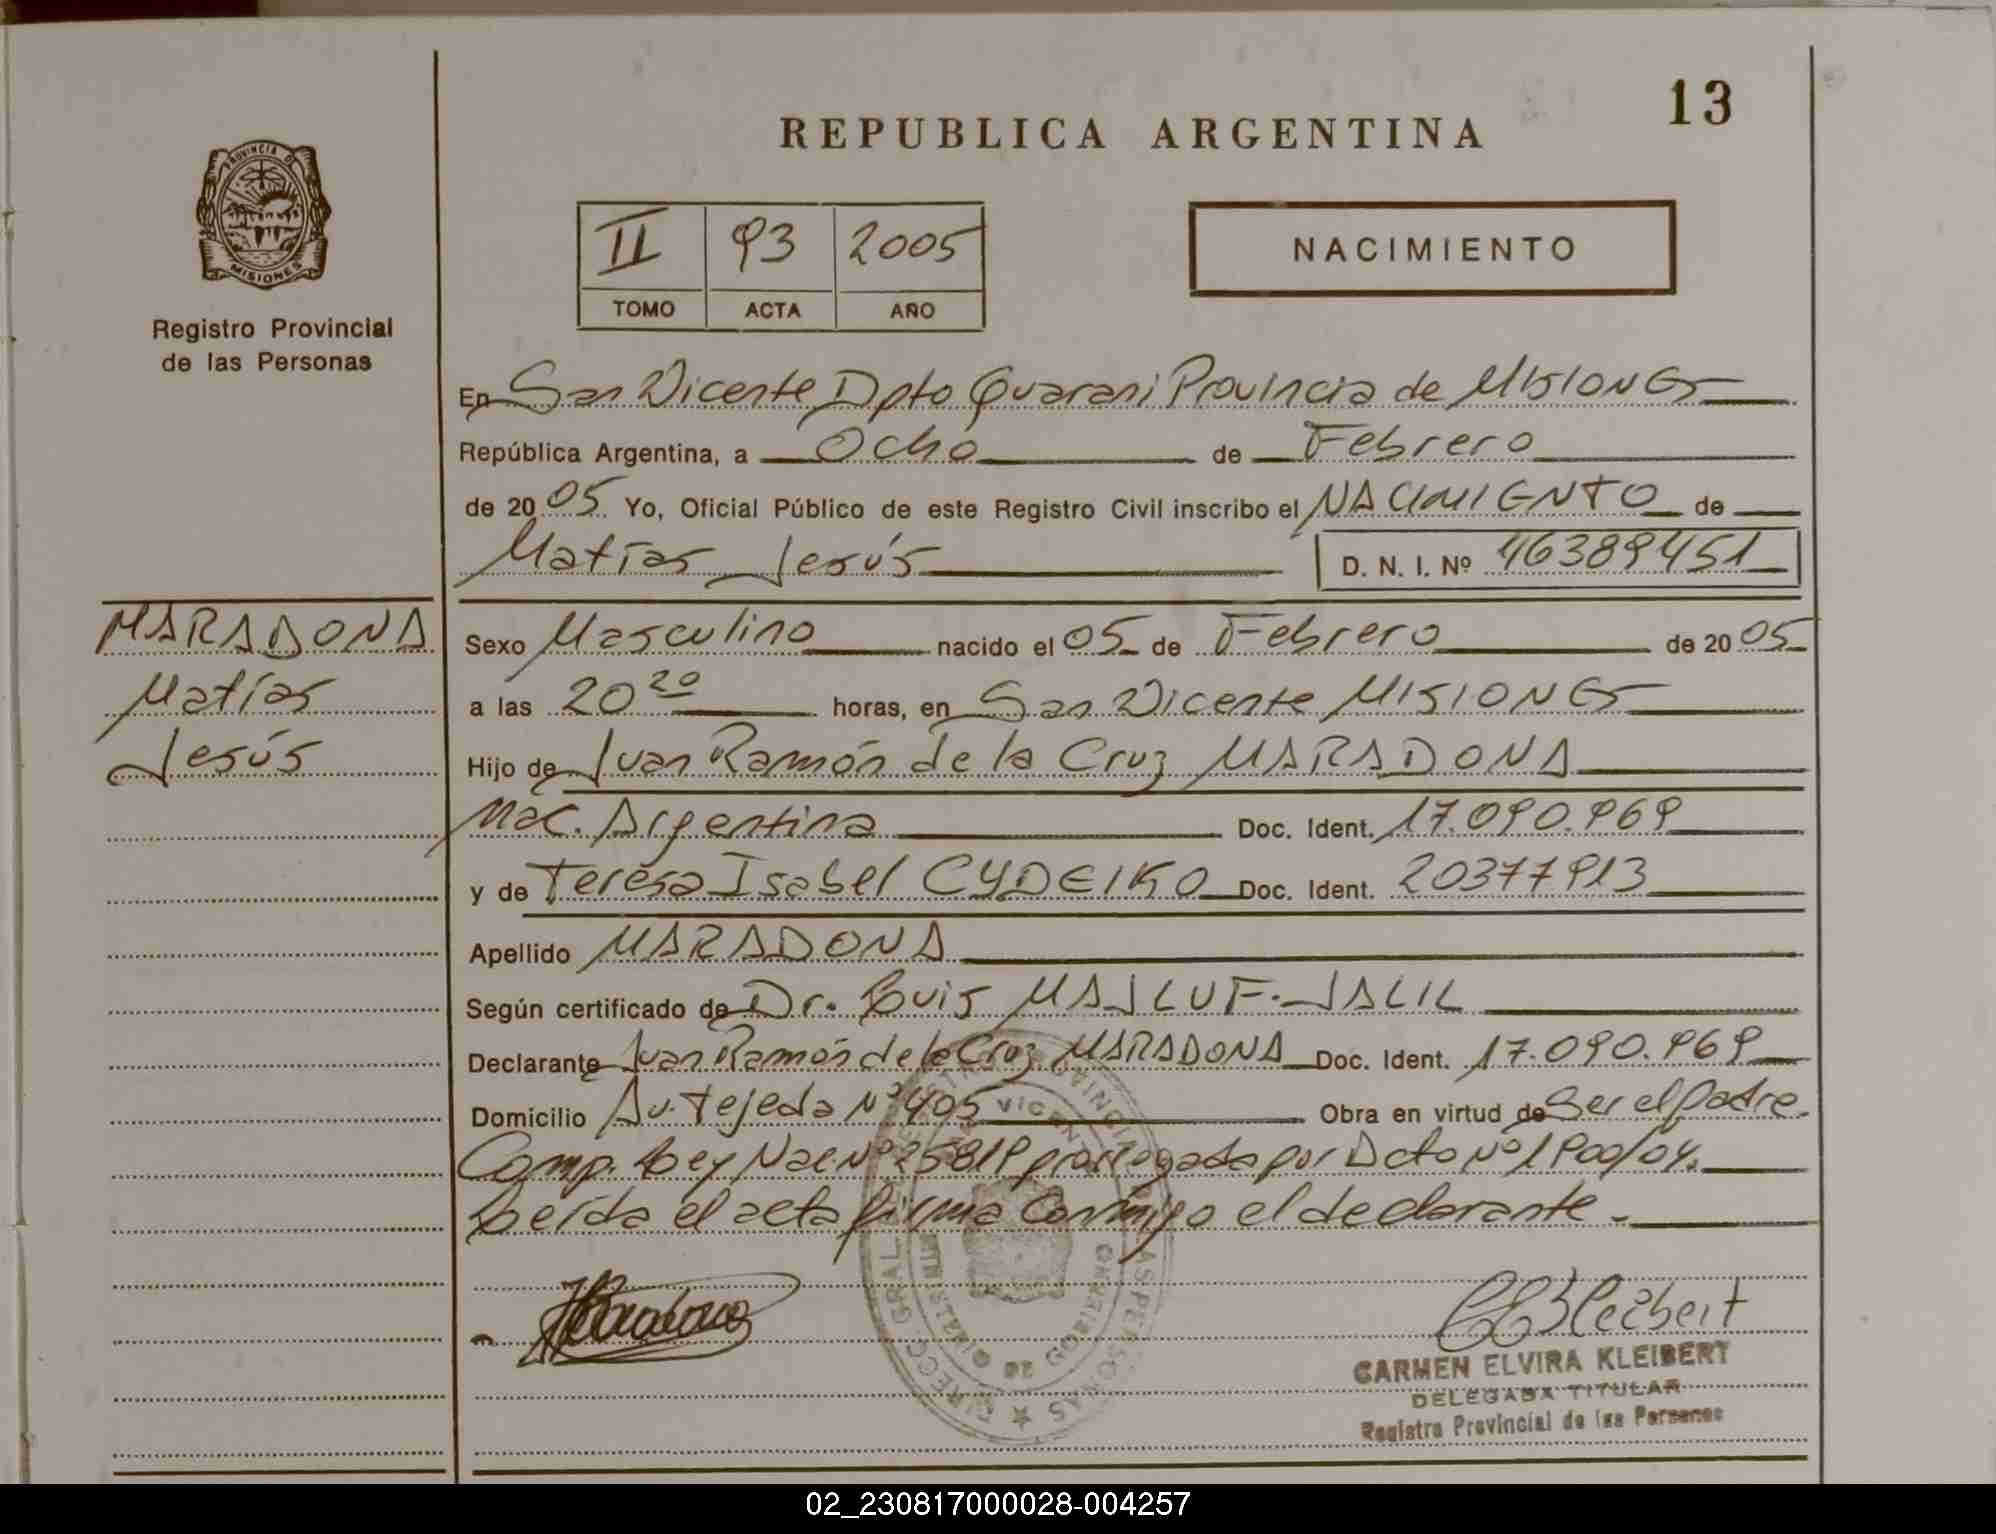 13
REPUBLICA ARGENTINA
PROVINCIA DE
MISIONES
Registro Provincial
de las Personas
II 93 2005
TOMO ACTA AÑO
NACIMIENTO
En San Vicente Dpto Guaraní Provincia de MISIONES
República Argentina, a Ocho de Febrero
de 2005 Yo, Oficial Público de este Registro Civil inscribo el NACIMIENTO de
Matías Jesús D. N. I. Nº 46389451
MARADONA
Matías
Jesús
Sexo Masculino nacido el 05 de Febrero de 2005
a las 20 20 horas, en San Vicente MISIONES
Hijo de Juan Ramón de la Cruz MARADONA
Nac. Argentina Doc. Ident. 17.090.969
y de Teresa Isabel CYDEIKO Doc. Ident. 20377913
Apellido MARADONA
Según certificado de Dr. Luis MAJLUF-JALIL
Declarante Juan Ramón de la Cruz MARADONA Doc. Ident. 17.090.969
Domicilio Av. Tejeda Nº 405 Obra en virtud de Ser el Padre.
Comp. Ley Nac. Nº 25819 prorrogada por Dcto Nº 1900/04.
Leída el acta firma conmigo el declarante.
CEKleibert
CARMEN ELVIRA KLEIBERT
DELEGADA TITULAR
Registro Provincial de las Personas
02_230817000028-004257